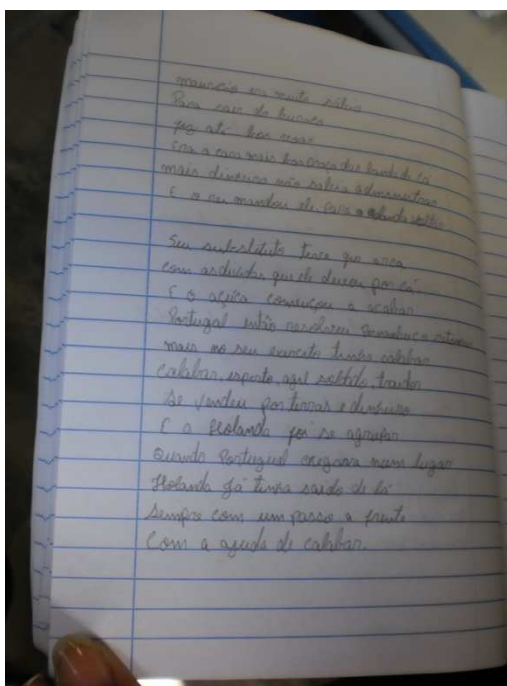 mauricio era muito sábio
Para sair do buraco
fez até boi voar
Era a casa mais das banda de lá
mais dinheiro não sabia administrar
E o rei mandou ele para a olanda voltar
Seu substituto teve que arca
com as dividas que ele deixou por cá
E o açúca começou a acabar
Portugal então resolveu Pernambuco
mais no seu exercito tinha calabar
calabar, esperto, agil soldado, traidor
se vendeu por terras e dinheiro
E a Holanda foi se agrupar
Quando Portugual chegava num lugar
Holanda já tinha saido de lá
Sempre com um passo a frente
Com a ajuda de calabar.